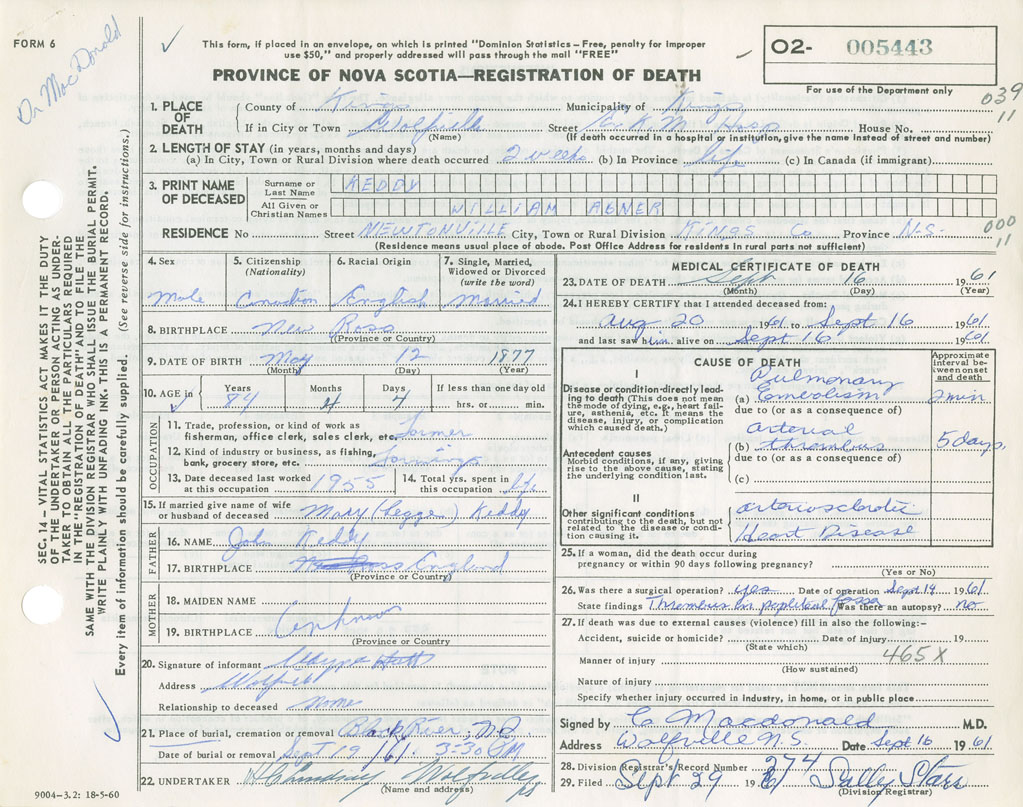 FORM 6
Dr MacDonald
This form, if placed in an envelope, on which is printed "Dominion Statistics – Free, penalty for improper
use $50," and properly addressed will pass through the mail "FREE"
PROVINCE OF NOVA SCOTIA—REGISTRATION OF DEATH
O2- 005443
For use of the Department only
039
11
1. PLACE OF DEATH
County of Kings Municipality of Kings
If in City or Town Wolfville Street E.K.M. Hosp House No.
(Name) (If death occurred in a hospital or institution, give the name instead of street and number)
2. LENGTH OF STAY (in years, months and days)
(a) In City, Town or Rural Division where death occurred 2 weeks (b) In Province life (c) In Canada (if immigrant)
3. PRINT NAME OF DECEASED
Surname or Last Name KEDDY
All Given or Christian Names WILLIAM ABNER
RESIDENCE No Street NEWTONVILLE City, Town or Rural Division KINGS Co Province N.S.
000
11
(Residence means usual place of abode. Post Office Address for residents in rural parts not sufficient)
4. Sex Male
5. Citizenship (Nationality) Canadian
6. Racial Origin English
7. Single, Married, Widowed or Divorced (write the word) Married
8. BIRTHPLACE New Ross
(Province or Country)
9. DATE OF BIRTH May 12 1877
(Month) (Day) (Year)
10. AGE in Years 84 Months 4 Days 4 If less than one day old hrs. or min.
OCCUPATION
11. Trade, profession, or kind of work as
fisherman, office clerk, sales clerk, etc. Farmer
12. Kind of industry or business, as fishing,
bank, grocery store, etc. Farming
13. Date deceased last worked at this occupation 1955
14. Total yrs. spent in this occupation life
15. If married give name of wife
or husband of deceased Mary (Legge) Keddy
FATHER
16. NAME John Keddy
17. BIRTHPLACE England
(Province or Country)
MOTHER
18. MAIDEN NAME
19. BIRTHPLACE
(Province or Country
20. Signature of informant Wayne
Address Wolfville
Relationship to deceased none
21. Place of burial, cremation or removal Black River, N.S.
Date of burial or removal Sept 19/61 3:30 PM
22. UNDERTAKER Lindsay Wolfville NS
(Name and address)
9004-3.2: 18-5-60
MEDICAL CERTIFICATE OF DEATH
23. DATE OF DEATH Sept 16 1961
(Month) (Day) (Year)
24. I HEREBY CERTIFY that I attended deceased from:
Aug 20 1961 to Sept 16 1961
and last saw him alive on Sept 16 1961
CAUSE OF DEATH
Approximate interval between onset and death
I
Disease or condition directly leading to death (This does not mean the mode of dying, e.g., heart failure, asthenia, etc. It means the disease, injury, or complication which caused death.)
(a) Pulmonary Embolism 2 min
due to (or as a consequence of)
Antecedent causes
Morbid conditions, if any, giving rise to the above cause, stating the underlying condition last.
(b) arterial thrombus 5 days
due to (or as a consequence of)
(c)
II
Other significant conditions
contributing to the death, but not related to the disease or condition causing it.
arteriosclerotic
Heart Disease
25. If a woman, did the death occur during
pregnancy or within 90 days following pregnancy?
(Yes or No)
26. Was there a surgical operation? yes Date of operation Sept 14 1961
State findings Thrombus in popliteal fossa Was there an autopsy? no
27. If death was due to external causes (violence) fill in also the following:-
Accident, suicide or homicide? Date of injury 19
(State which)
465X
Manner of injury
(How sustained)
Nature of injury
Specify whether injury occurred in industry, in home, or in public place
Signed by Macdonald M.D.
Address Wolfville N.S. Date Sept 16 1961
28. Division Registrar's Record Number 274
29. Filed Sept 29 1961 Sally Starr
(Division Registrar)
SEC. 14 – VITAL STATISTICS ACT MAKES IT THE DUTY
OF THE UNDERTAKER OR PERSON ACTING AS UNDER-
TAKER TO OBTAIN ALL THE PARTICULARS REQUIRED
IN THE "REGISTRATION OF DEATH" AND TO FILE THE
SAME WITH THE DIVISION REGISTRAR WHO SHALL ISSUE THE BURIAL PERMIT.
WRITE PLAINLY WITH UNFADING INK. THIS IS A PERMANENT RECORD.
Every item of information should be carefully supplied. (See reverse side for instructions.)